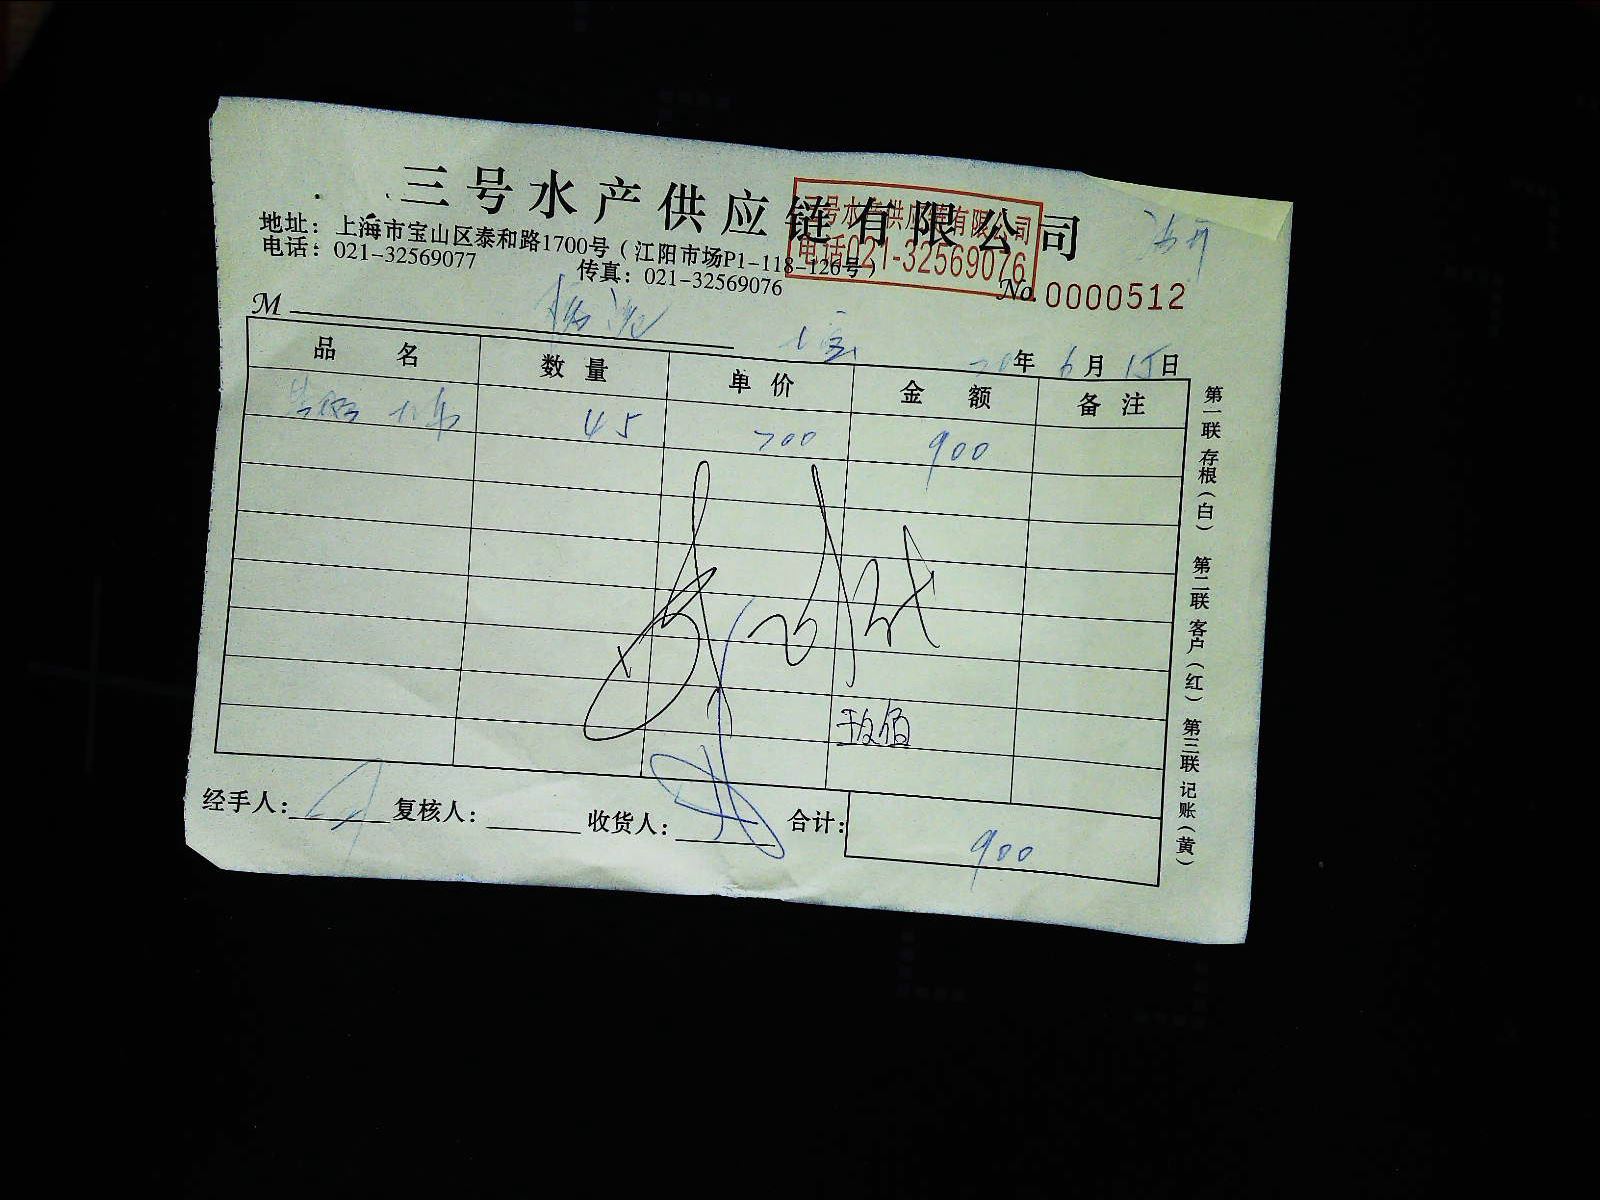 三号水产供应链有限公司
三号水产供应链有限公司
电话021-32569076
地址：上海市宝山区泰和路1700号（江阳市场P1-118-126号）
电话：021-32569077
传真：021-32569076
No.0000512
M
20年6月15日
品名 数量 单价 金额 备注
45 200 900
玖佰
经手人： 复核人： 收货人： 合计： 900
第一联 存根（白） 第二联 客户（红） 第三联 记账（黄）